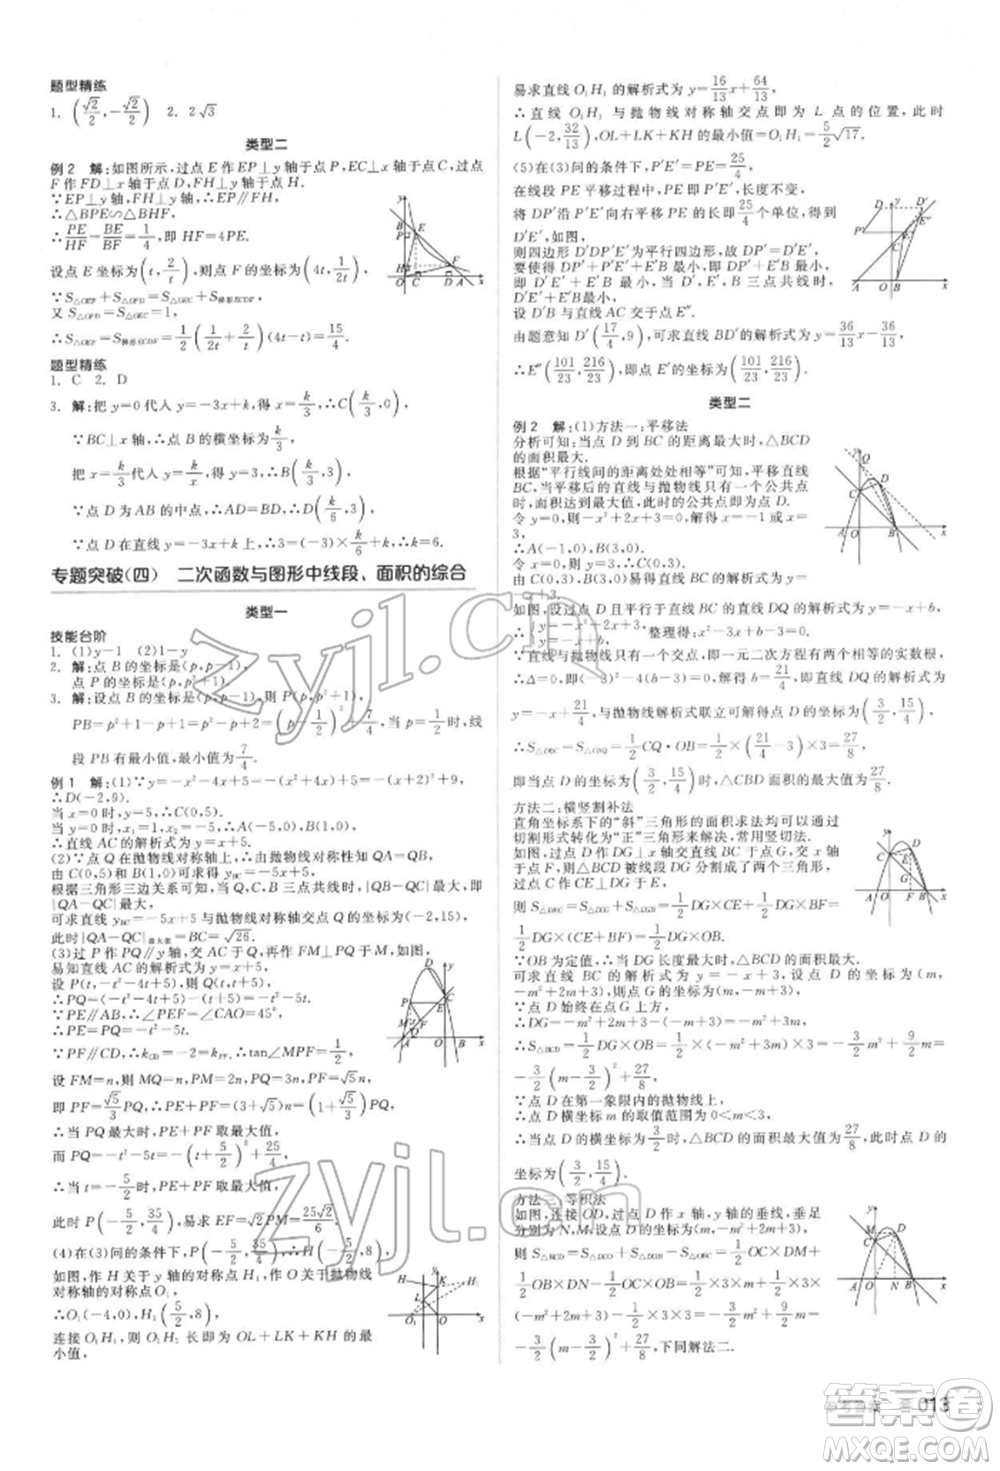 题型精练
1. (√2/2, -√2/2)  2. 2√3
类型二
例2 解:如图所示,过点E作EP⊥y轴于点P,EC⊥x轴于点C,过点
F作FD⊥x轴于点D,FH⊥y轴于点H.
∵EP⊥y轴,FH⊥y轴,∴EP∥FH,
∴△BPE∽△BHF,
∴PE/HF=BE/BF=1/4,即HF=4PE.
设点E坐标为(t, 2/t),则点F的坐标为(4t, 1/2t),
∵S△OEF+S△OFD=S△OEC+S梯形ECDF,
又S△OFD=S△OEC=1,
∴S△OEF=S梯形ECDF=1/2(1/2t+2/t)(4t-t)=15/4
题型精练
1. C  2. D
3. 解:把y=0代入y=-3x+k,得x=k/3,∴C(k/3,0),
∵BC⊥x轴,∴点B的横坐标为k/3,
把x=k/3代入y=k/x,得y=3,∴B(k/3,3),
∵点D为AB的中点,∴AD=BD,∴D(k/6,3),
∵点D在直线y=-3x+k上,∴3=(-3)×k/6+k,∴k=6.
专题突破(四) 二次函数与图形中线段、面积的综合
类型一
技能台阶
1. (1)y-1 (2)1-y
2. 解:点B的坐标是(p,p-1),
点P的坐标是(p,p²+1).
3. 解:设点B的坐标是(p,p-1),则P(p,p²+1),
PB=p²+1-p+1=p²-p+2=(p-1/2)²+7/4,当p=1/2时,线
段PB有最小值,最小值为7/4.
例1 解:(1)∵y=-x²-4x+5=-(x+2)²+9,
∴D(-2,9).
当x=0时,y=5,∴C(0,5).
当y=0时,x₁=1,x₂=-5,∴A(-5,0),
∴直线AC的解析式为y=x+5.
(2)∵点Q在抛物线对称轴上,∴由抛物线对称性知QA=QB.
由C(0,5)和B(1,0)可得yBC=-5x+5,
根据三角形三边关系可知,当Q、C、B三点共线时,|QB-QC|最大,即|QA-QC|最大,
可求直线yBC=-5x+5与抛物线对称轴交点Q的坐标为(-2,15),
此时|QA-QC|最大值=BC=√26.
(3)过P作PQ∥y轴,交AC于Q,再作FM⊥PQ于M,
易知直线AC的解析式为y=x+5,
设P(t,-t²-4t+5),则Q(t,t+5),
∴PQ=(-t²-4t+5)-(t+5)=-t²-5t.
∵PE∥AB,∴∠PEA=∠CAO=45°,
∵PF∥CD,∴kCD=kPF,∴tan∠MPF=1/2,
设FM=n,则MQ=n,PM=2n,PQ=3n,PF=√5n,
即PF+PQ=√5n+3n=(3+√5)n=(1+√5/3)PQ,
∴当PQ最大时,PF+PQ取最大值,
而PQ=-t²-5t=-(t+5/2)²+25/4,
∴当t=-5/2时,PQ最大,即PF+PQ取得最大值,
此时P(-5/2,35/4),易求EF=√2PM=25√2/6
(4)在(3)问的条件下,P(-5/2,35/4),
如图,作H关于y轴的对称点H₁,作O关于抛物线
对称轴的对称点O₁,
∴O₁(-4,0),H₁(5/2,8),
连接O₁H₁,则O₁H₁即为OL+LK+KH的最
小值,
易求直线O₁H₁的解析式为y=16/13x+64/13,
∴直线O₁H₁与抛物线对称轴交点即为L点的位置,此时
L(-2,32/13),∴OL+LK+KH的最小值=O₁H₁=5/2√17.
(5)在(3)问的条件下,P'E'=PE=25/4
在线段PE平移过程中,P'E'长度不变,
将DP'沿P'E'向右平移PE的长即25/4个单位,得到
D'E',如图,
则四边形D'DP'E'为平行四边形,故DP'=D'E',
要使DP'+BE'最小,即D'、E'、B三点共线,
设D'B与直线AC交于点E″.
由题意知D'(17/4,9),可求直线BD'的解析式为y=36/13x-36/13,
∴E″(101/23,216/23),即点E'坐标为(101/23,216/23).
类型二
例2 解:(1)方法一:平移法
分析可知:当点D到BC的距离最大时,△BCD
的面积最大.
根据“平行线间的距离处处相等”可知,平移直线
BC,当平移后的直线与抛物线有一个公共点
时,面积达到最大,此时的公共点即为点D.
令y=0,则-x²+2x+3=0,解得x=-1或x=3,
∴B(3,0).
令x=0,则y=3,
∴C(0,3).
由B(3,0),C(0,3)可得直线BC的解析式为y=-x+3.
如图,设过点D且平行于直线BC的直线DQ的解析式为y=-x+b,
∴{y=-x²+2x+3, y=-x+b, 整理得:x²-3x+b-3=0,
∵直线与抛物线只有一个交点,即一元二次方程有两个相等的实数根,
∴Δ=0,即(-3)²-4(b-3)=0,解得b=21/4,∴直线DQ的解析式为
y=-x+21/4,与抛物线解析式联立可解得点D的坐标为(3/2,15/4),
∴S△DBC=S△CBQ=1/2CQ·OB=1/2×(21/4-3)×3=27/8,
即当点D坐标为(3/2,15/4)时,△CBD面积的最大值为27/8.
方法二:横竖割补法
直角坐标系下的“斜”三角形的面积求法均可以通过
切割形式转化为“正”三角形来解决,常用竖切法.
如图,过点D作DF⊥x轴交直线BC于点G,交x轴
于点F,则△BCD被线段DG分割成了两个三角形,
过点C作CE⊥DG于点E,
则S△DBC=S△DCG+S△DBG=1/2DG×CE+
1/2DG×BF=1/2DG×OB.
∵OB为定值,∴当DG长度最大时,△BCD面积最大.
可求直线BC的解析式为y=-x+3,设点D的坐标为(m,
-m²+2m+3),则点G的坐标为(m,-m+3),
∵点D始终在点G的上方,
∴DG=-m²+2m+3-(-m+3)=-m²+3m,
∴S△BCD=1/2DG×OB=1/2×(-m²+3m)×3=-3/2m²+9/2m=
-3/2(m-3/2)²+27/8.
∵点D在第一象限内的抛物线上,
∴点D横坐标m的取值范围为0<m<3.
∴当点D的横坐标为3/2时,△BCD的面积的最大值为27/8,此时点D的
坐标为(3/2,15/4).
方法三:等积法
如图,连接OD,过点D作x轴,y轴的垂线,垂足
分别为N,M,设点D的坐标为(m,-m²+2m+3),
∵S△DBC=S△OBD+S△OCD-S△OBC=1/2OC×DM+
1/2OB×DN-1/2OB×OC=1/2×3×m+1/2×3×
(-m²+2m+3)-1/2×3×3=-3/2m²+9/2m=
-3/2(m-3/2)²+27/8,下同解法二.
zyjl.cn
zyjl.cn
答案圈
MXQE.COM
013